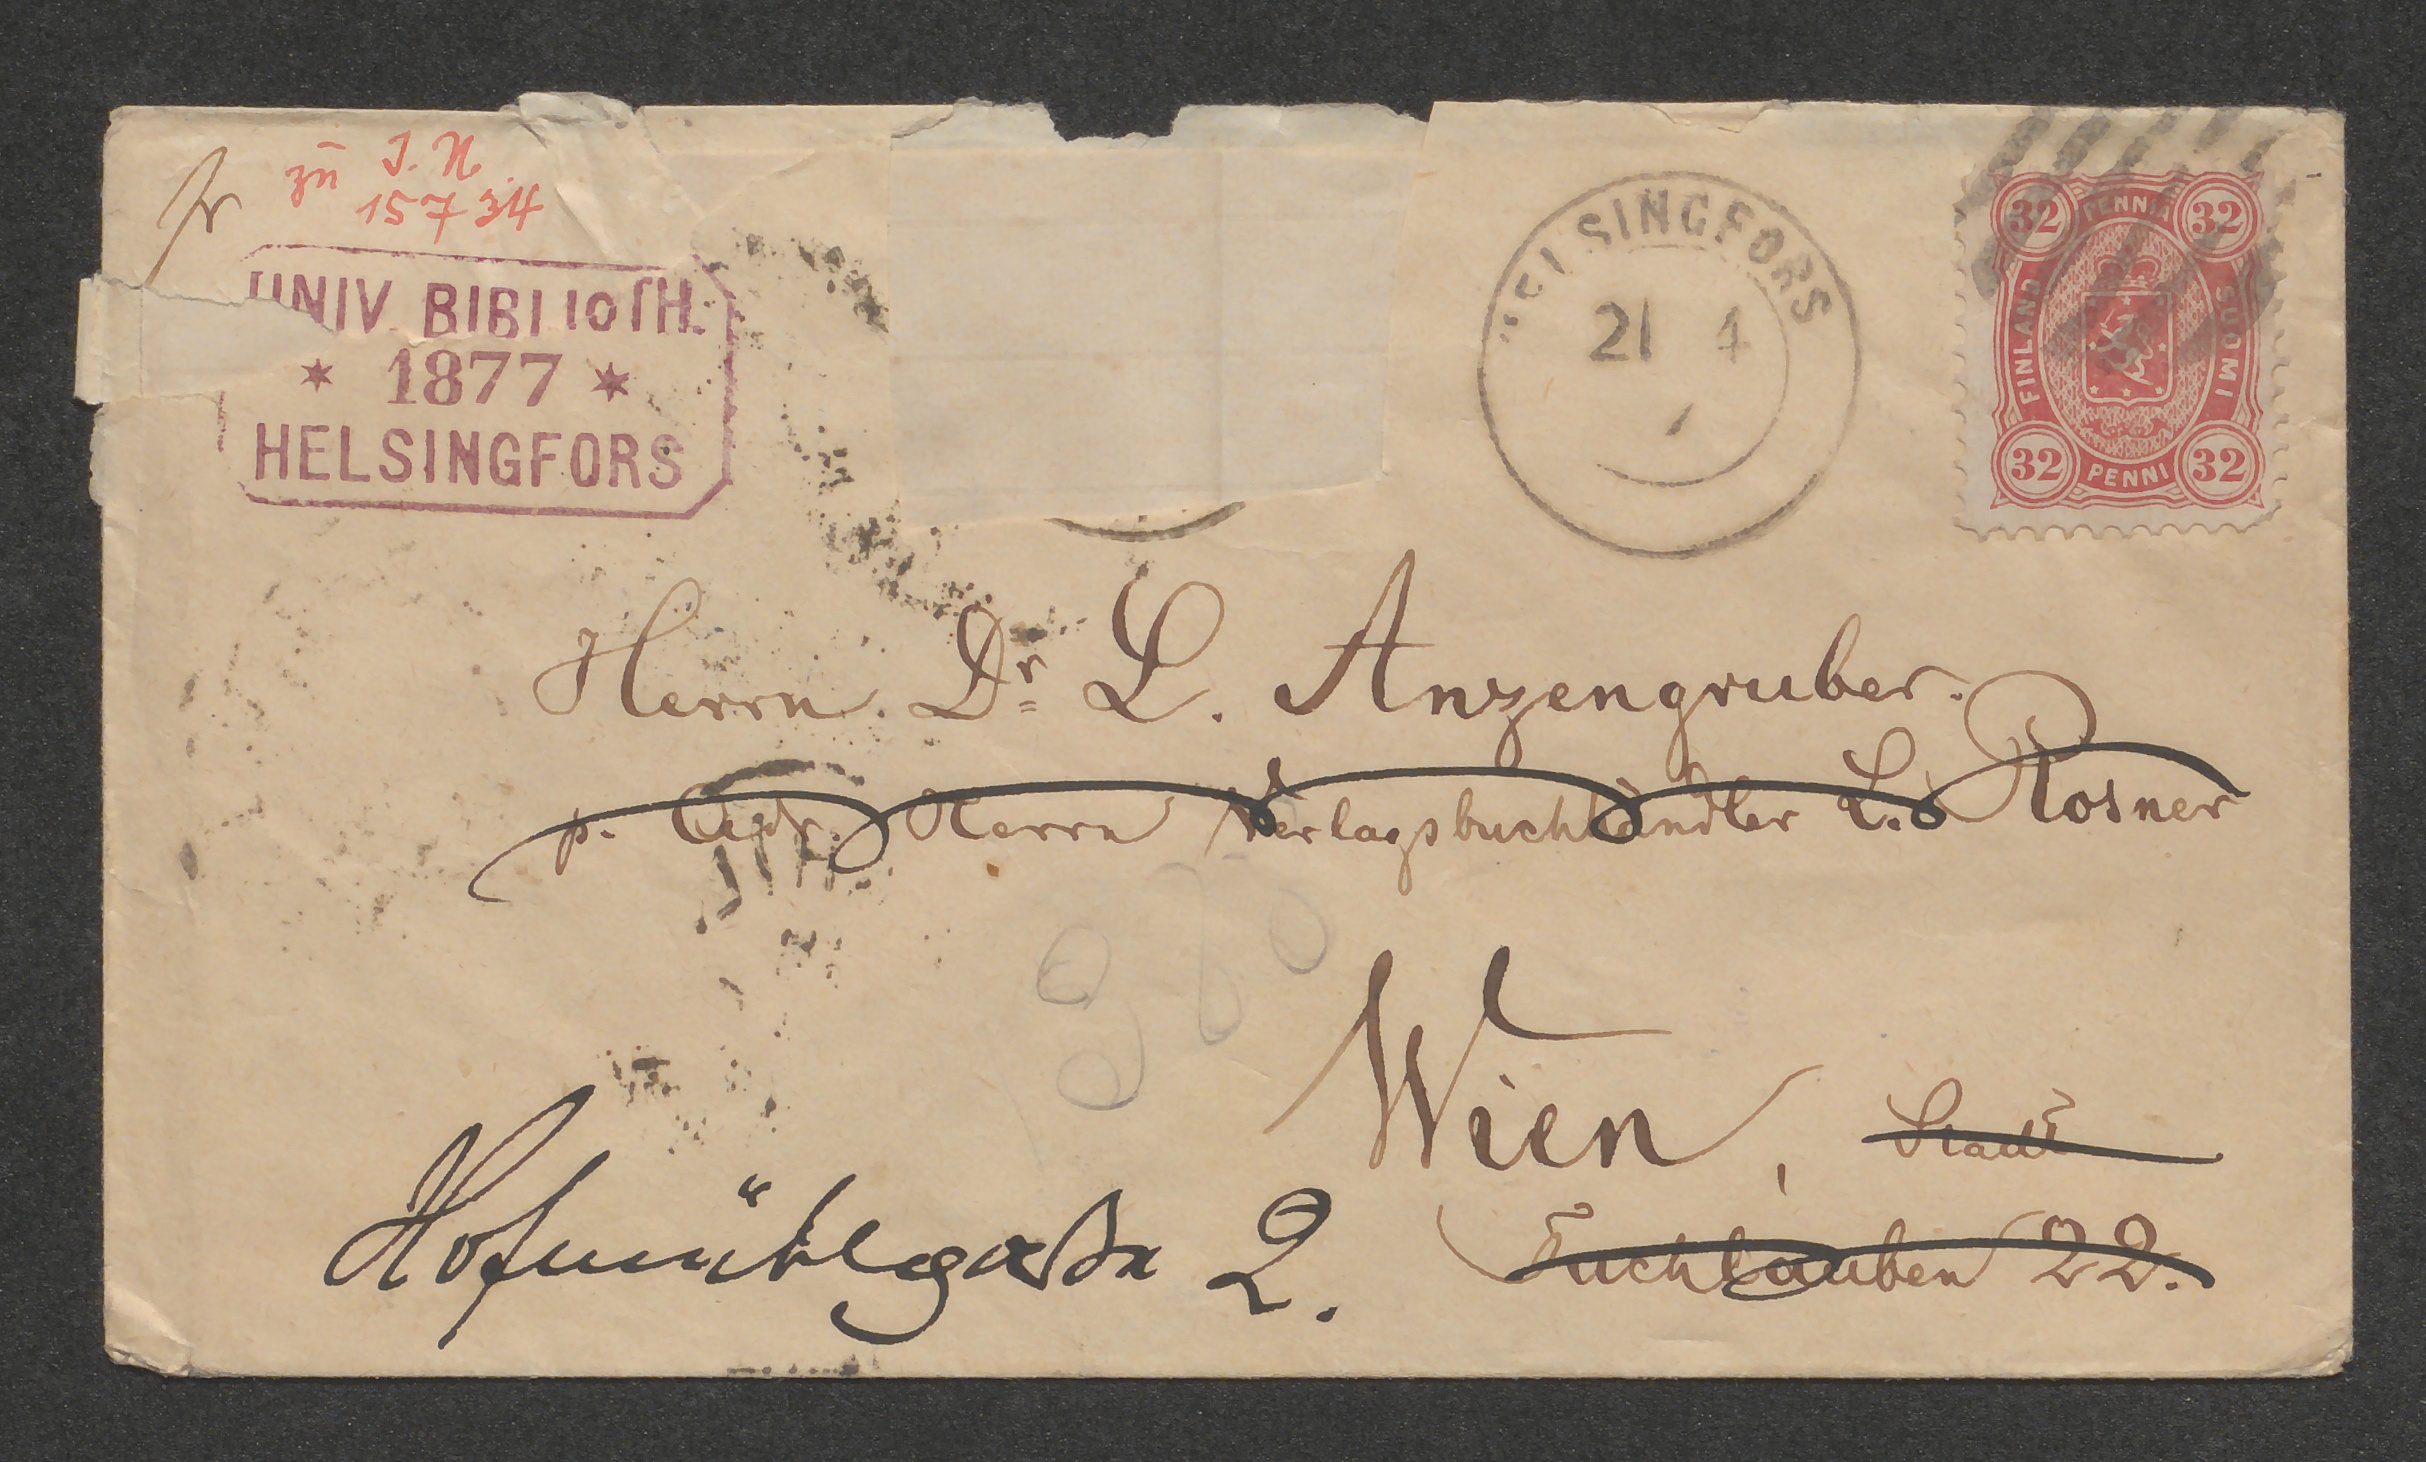 zu J. N.
15734
UNIV. BIBLIOTH.
* 1877 *
HELSINGFORS
HELSINGFORS
21 4
32 PENNIÄ 32
FINLAND SUOMI
32 PENNI 32
Herrn Dr L. Anzengruber.
p. Adr. Herrn Verlagsbuchhändler L. Rosner
Wien, Stadt
Tuchlauben 22.
Hofmühlgasse 2.